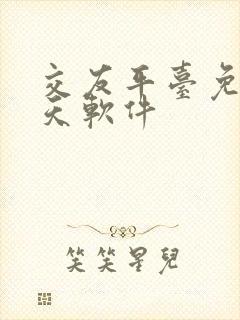 交友平臺免
天軟件
笑笑星兒